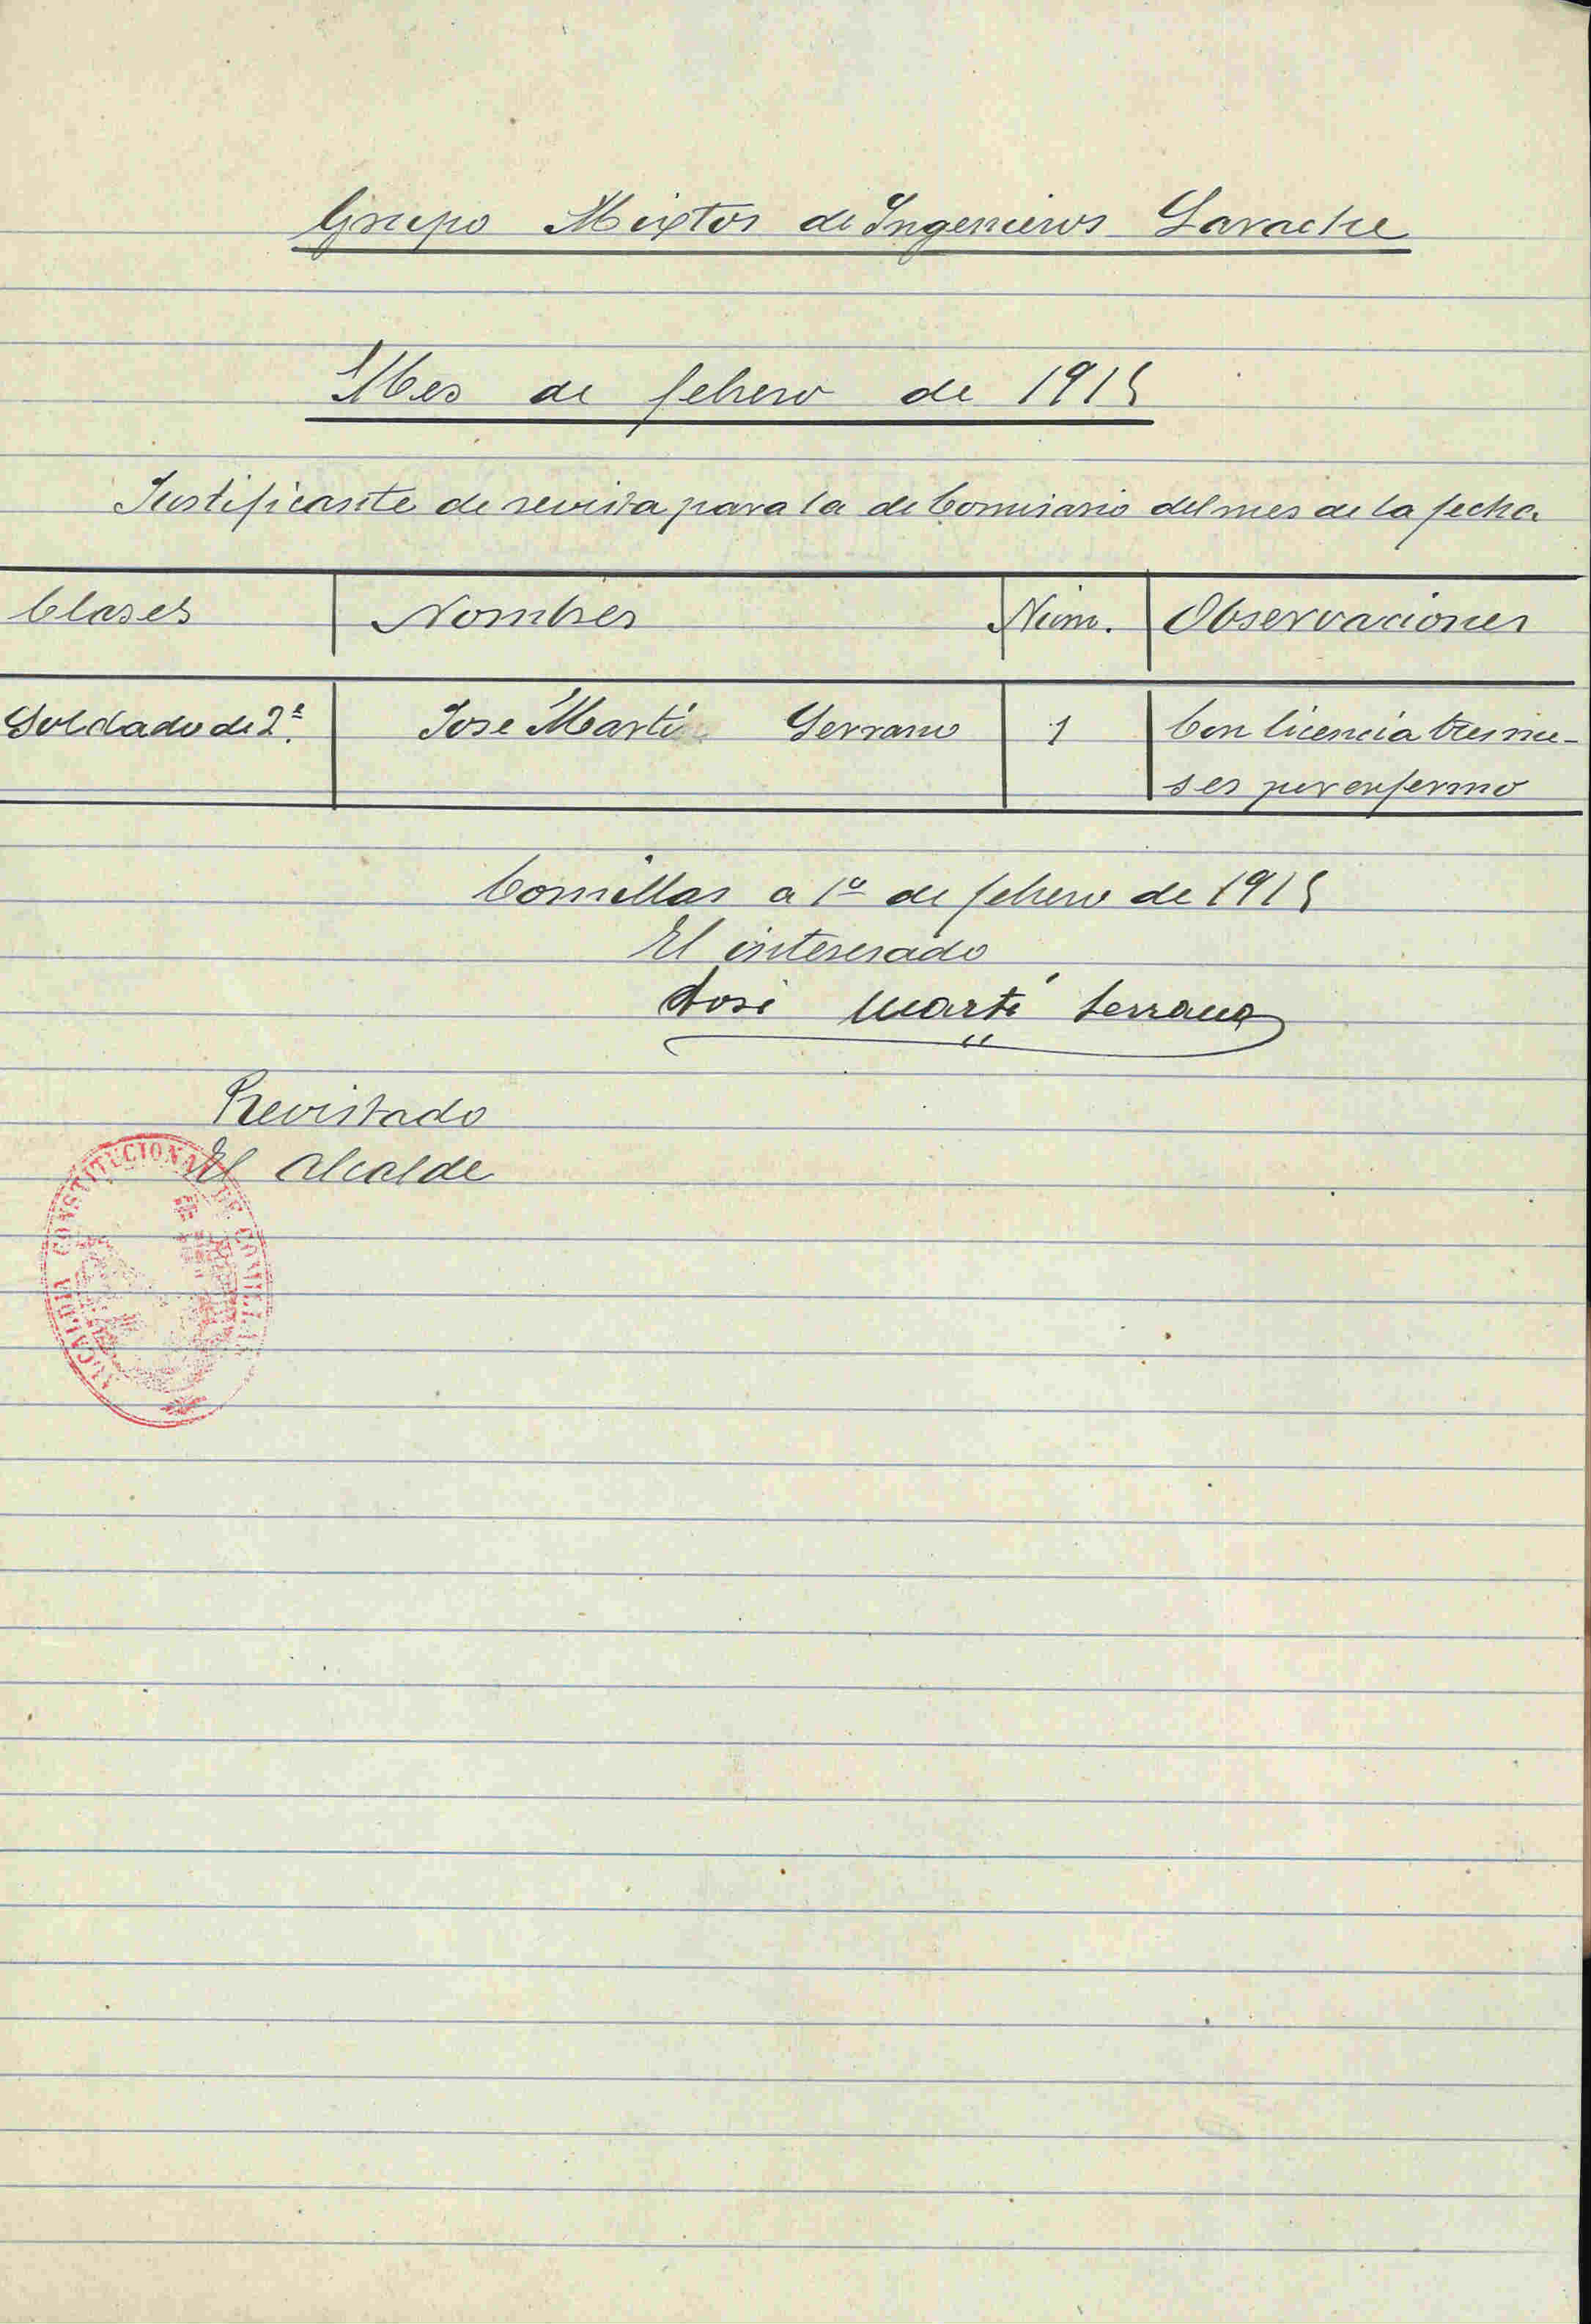 Grupo Mixtos de Ingenieros Larache
Mes de febrero de 1915
Justificante de revista para la de Comisario del mes de la fecha
Clases Nombres Núm. Observaciones
Soldado de 2ª. Jose Martí Serrano 1 Con licencia tres me-
ses por enfermo
Comillas a 1º de febrero de 1915
El interesado
José Martí Serrano
Revistado
El Alcalde
ALCALDIA CONSTITUCIONAL DE COMILLAS